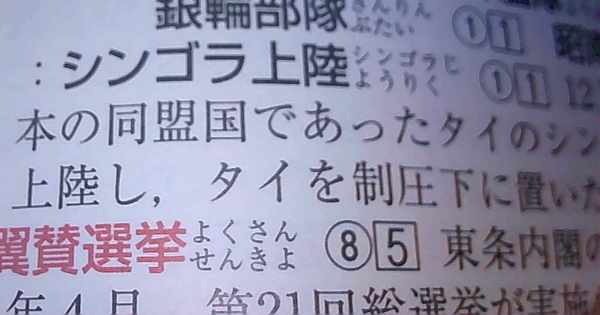 銀輪部隊 ぎんりん ぶたい ①1 昭
：シンゴラ上陸 シンゴラじ ようりく ①1 12
本の同盟国であったタイのシン
上陸し，タイを制圧下に置いた
翼賛選挙 よくさん せんきよ ⑧5 東条内閣の
年4月，第21回総選挙が実施